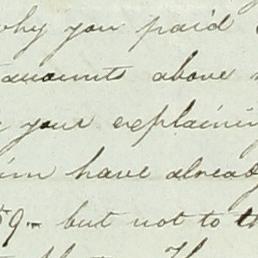 why you paid
amounts above
your explaining
have already
59 - but not to th